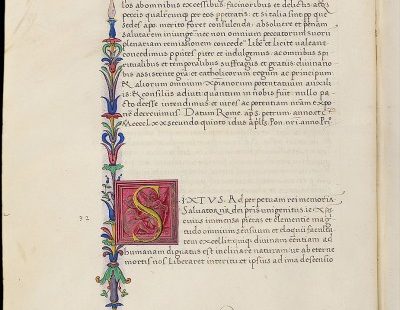 los abominibus excessibus facinoribus et delictis atq3
peccis qualicunq3 per eos ppetratis: et si talia sint pp que
sedes apo. merito foret consulenda absoluere et penam
salutarem iniungere nec non omnium peccatorum suorū
plenariam remissionem concedere Libere et licite ualeant
concedimus pariter et indulgemus ac omnibus spi
ritualibus et temporalibus suffragiis et gratiis diuina no
bis assistente gratia et catholicorum regum ac principum
& aliorum omnium xpianorum potentatuum auxili
is: & consiliis adiuti quantum in nobis fuit nullo pacto
deesse intendimus et uires ac potentiam nram expo
nere decreuimus. Datum Rome aps. petrum. anno etc.
Mcccclxxsecundo quinto idus aplis. Pon. nri anno Pri.
SIXTUS. Ad perpetuam rei memoria
Saluatoris nri dei prius unigenitus iesu xps
cuius inmensa pietas et clementie mag
tudo omnium sensuum et eloquii faculta
tem excellit quique diuinam essentiam ad
humanam dignatus est inclinare naturam ut ab eterne
mortis nos Liberaret interitu et ipsius ad ima descensio
32